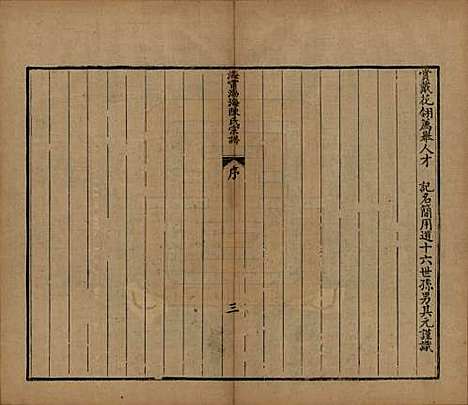 賞戴花翎薦舉人才　記名簡用道十六世孫男其元謹識
海寧渤海陳氏宗譜
序
三